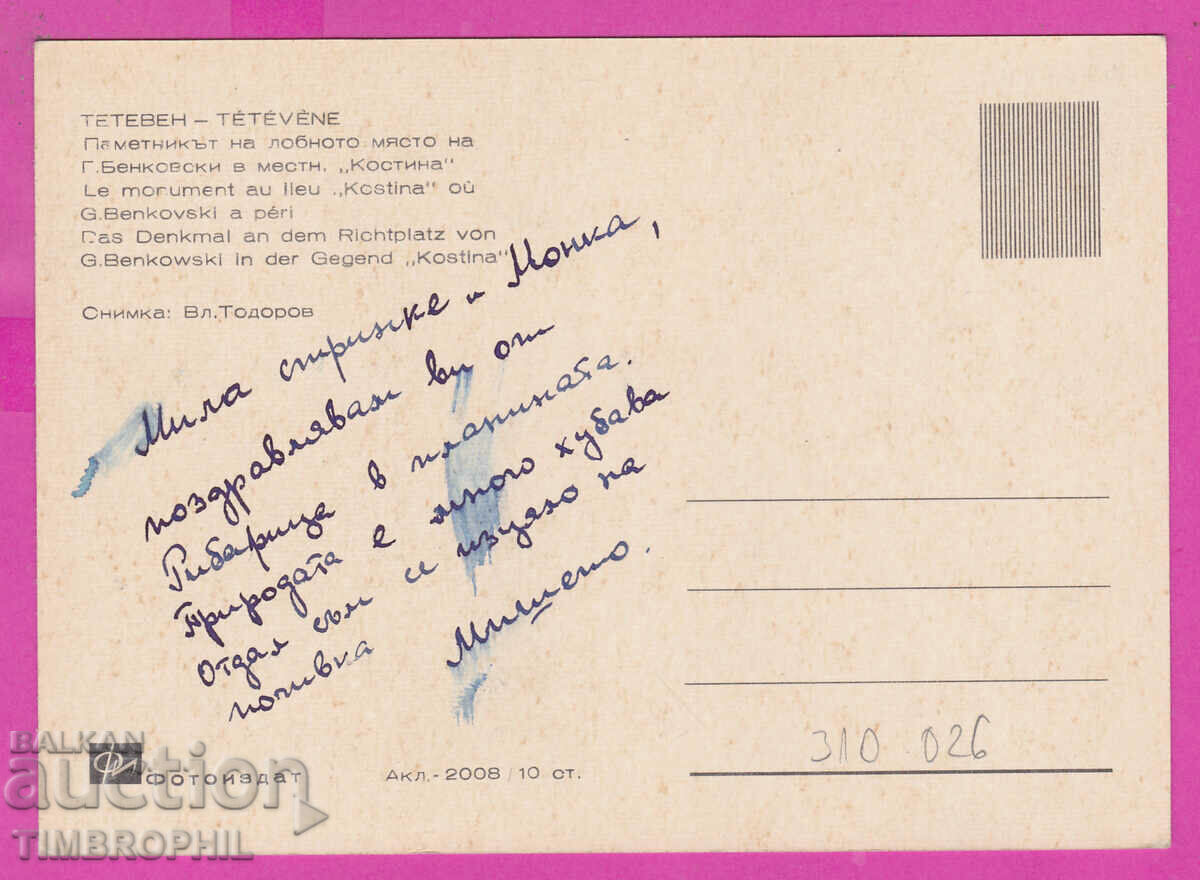 ТЕТЕВЕН – TÉTÉVÈNE
Паметникът на лобното място на
Г.Бенковски в местн. „Костина"
Le monument au lieu „Kostina" où
G.Benkovski a péri
Das Denkmal an dem Richtplatz von
G.Benkowski in der Gegend „Kostina"
Снимка: Вл.Тодоров
Мила стринке и Монка,
поздравлявам ви от
Рибарица в планината.
Природата е много хубава
Отдал съм се изцяло на
почивка Мишето.
310 026
Фотоиздат
Акл.-2008/10 ст.
BALKAN
auction
TIMBROPHIL